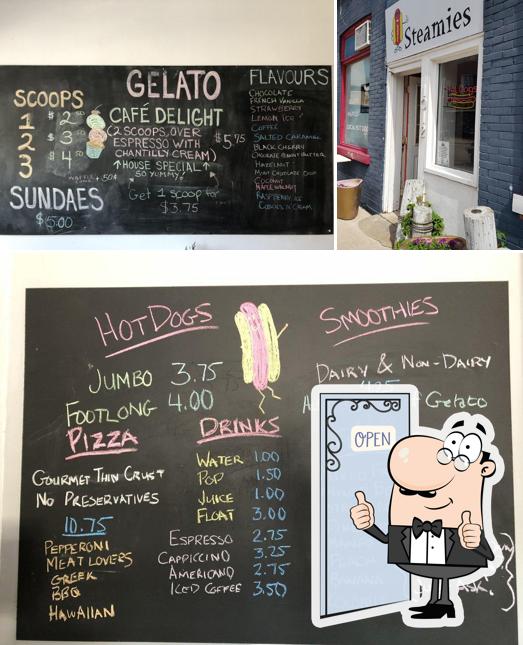 GELATO
SCOOPS
1 $2.50
2 $3.50
3 $4.50
WAFFLE CONE +.50¢
SUNDAES
$5.00
CAFÉ DELIGHT
(2 SCOOPS, OVER
ESPRESSO WITH
CHANTILLY CREAM)
$5.75
↑HOUSE SPECIAL↑
SO YUMMY!
Get 1 scoop for
$3.75
FLAVOURS
CHOCOLATE
FRENCH VANILLA
STRAWBERRY
LEMON ICE
COFFEE
SALTED CARAMEL
BLACK CHERRY
CHOCOLATE PEANUT BUTTER
HAZELNUT
MINT CHOCOLATE CHIP
COCONUT
MAPLE WALNUT
RASPBERRY ICE
COOKIES N' CREAM
Steamies
Hot Dogs
HOT DOGS
JUMBO 3.75
FOOTLONG 4.00
PIZZA
GOURMET THIN CRUST
NO PRESERVATIVES
10.75
PEPPERONI
MEAT LOVERS
GREEK
BBQ
HAWAIIAN
DRINKS
WATER 1.00
POP 1.50
JUICE 1.00
FLOAT 3.00
ESPRESSO 2.75
CAPPICCINO 3.25
AMERICANO 2.75
ICED COFFEE 3.50
SMOOTHIES
DAIRY & NON-DAIRY
Gelato
BANANA
ASK.
OPEN